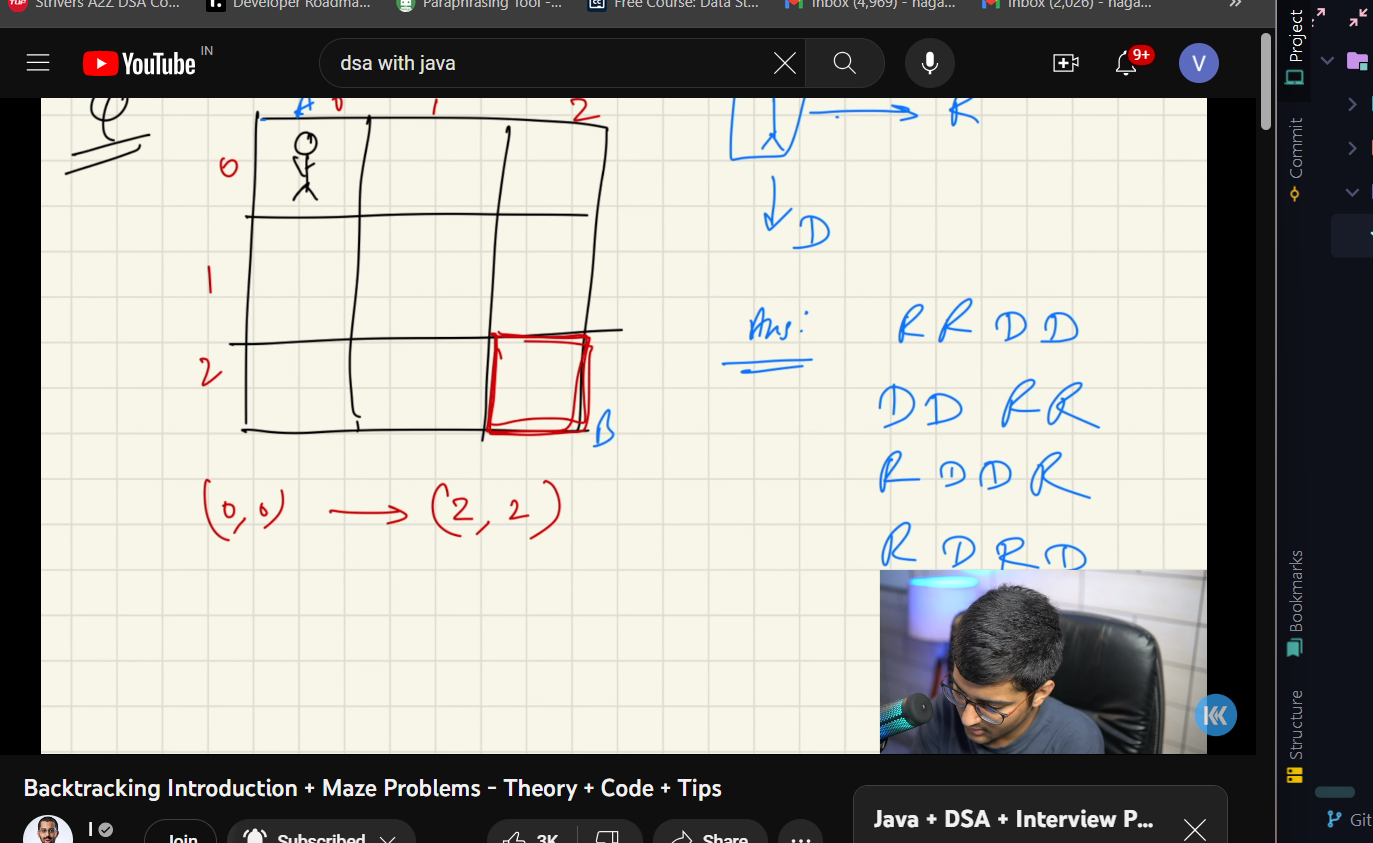 Strivers A2Z DSA Co...
Developer Roadma...
Paraphrasing Tool -...
Free Course: Data St...
Inbox (4,969) - naga...
Inbox (2,026) - naga...
»
YouTube IN
dsa with java
9+
V
A 0 1 2
R
0
D
1
Ans: R R D D
2
D D R R
B
R D D R
(0,0) → (2, 2)
R D R D
Backtracking Introduction + Maze Problems - Theory + Code + Tips
Java + DSA + Interview P...
Join
Subscribed
3K
Share
Project
Commit
Bookmarks
Structure
Git